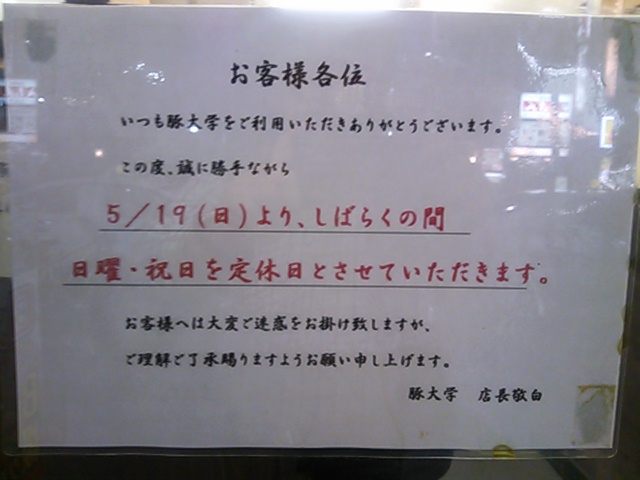 お客様各位
いつも豚大学をご利用いただきありがとうございます。
この度、誠に勝手ながら
5/19(日)より、しばらくの間
日曜・祝日を定休日とさせていただきます。
お客様へは大変ご迷惑をお掛け致しますが、
ご理解ご了承賜りますようお願い申し上げます。
豚大学 店長敬白